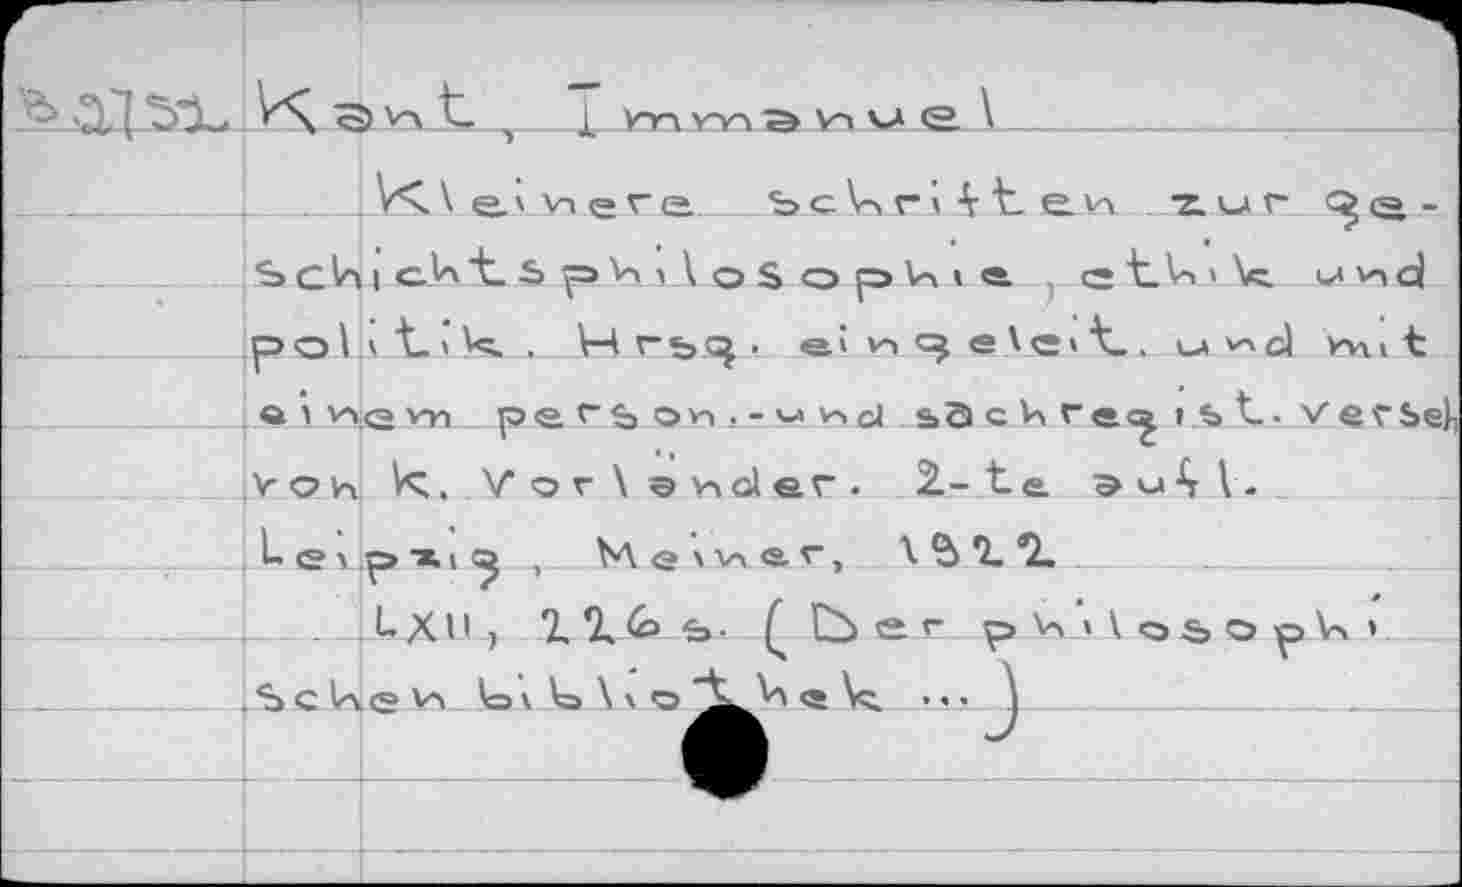 Kant, Immanuel
Kleinere schriften zur ge-
schichtsphilosophie, ethik und
politik. Hrsg. eingeleit. und mit
einem person.-und sachregist. verseh
von K. Vorländer. 2-te aufl.
Leipzig, Meiner, 1922
LXII, 226 s. (Der philosophi
schen bibliothek ...)